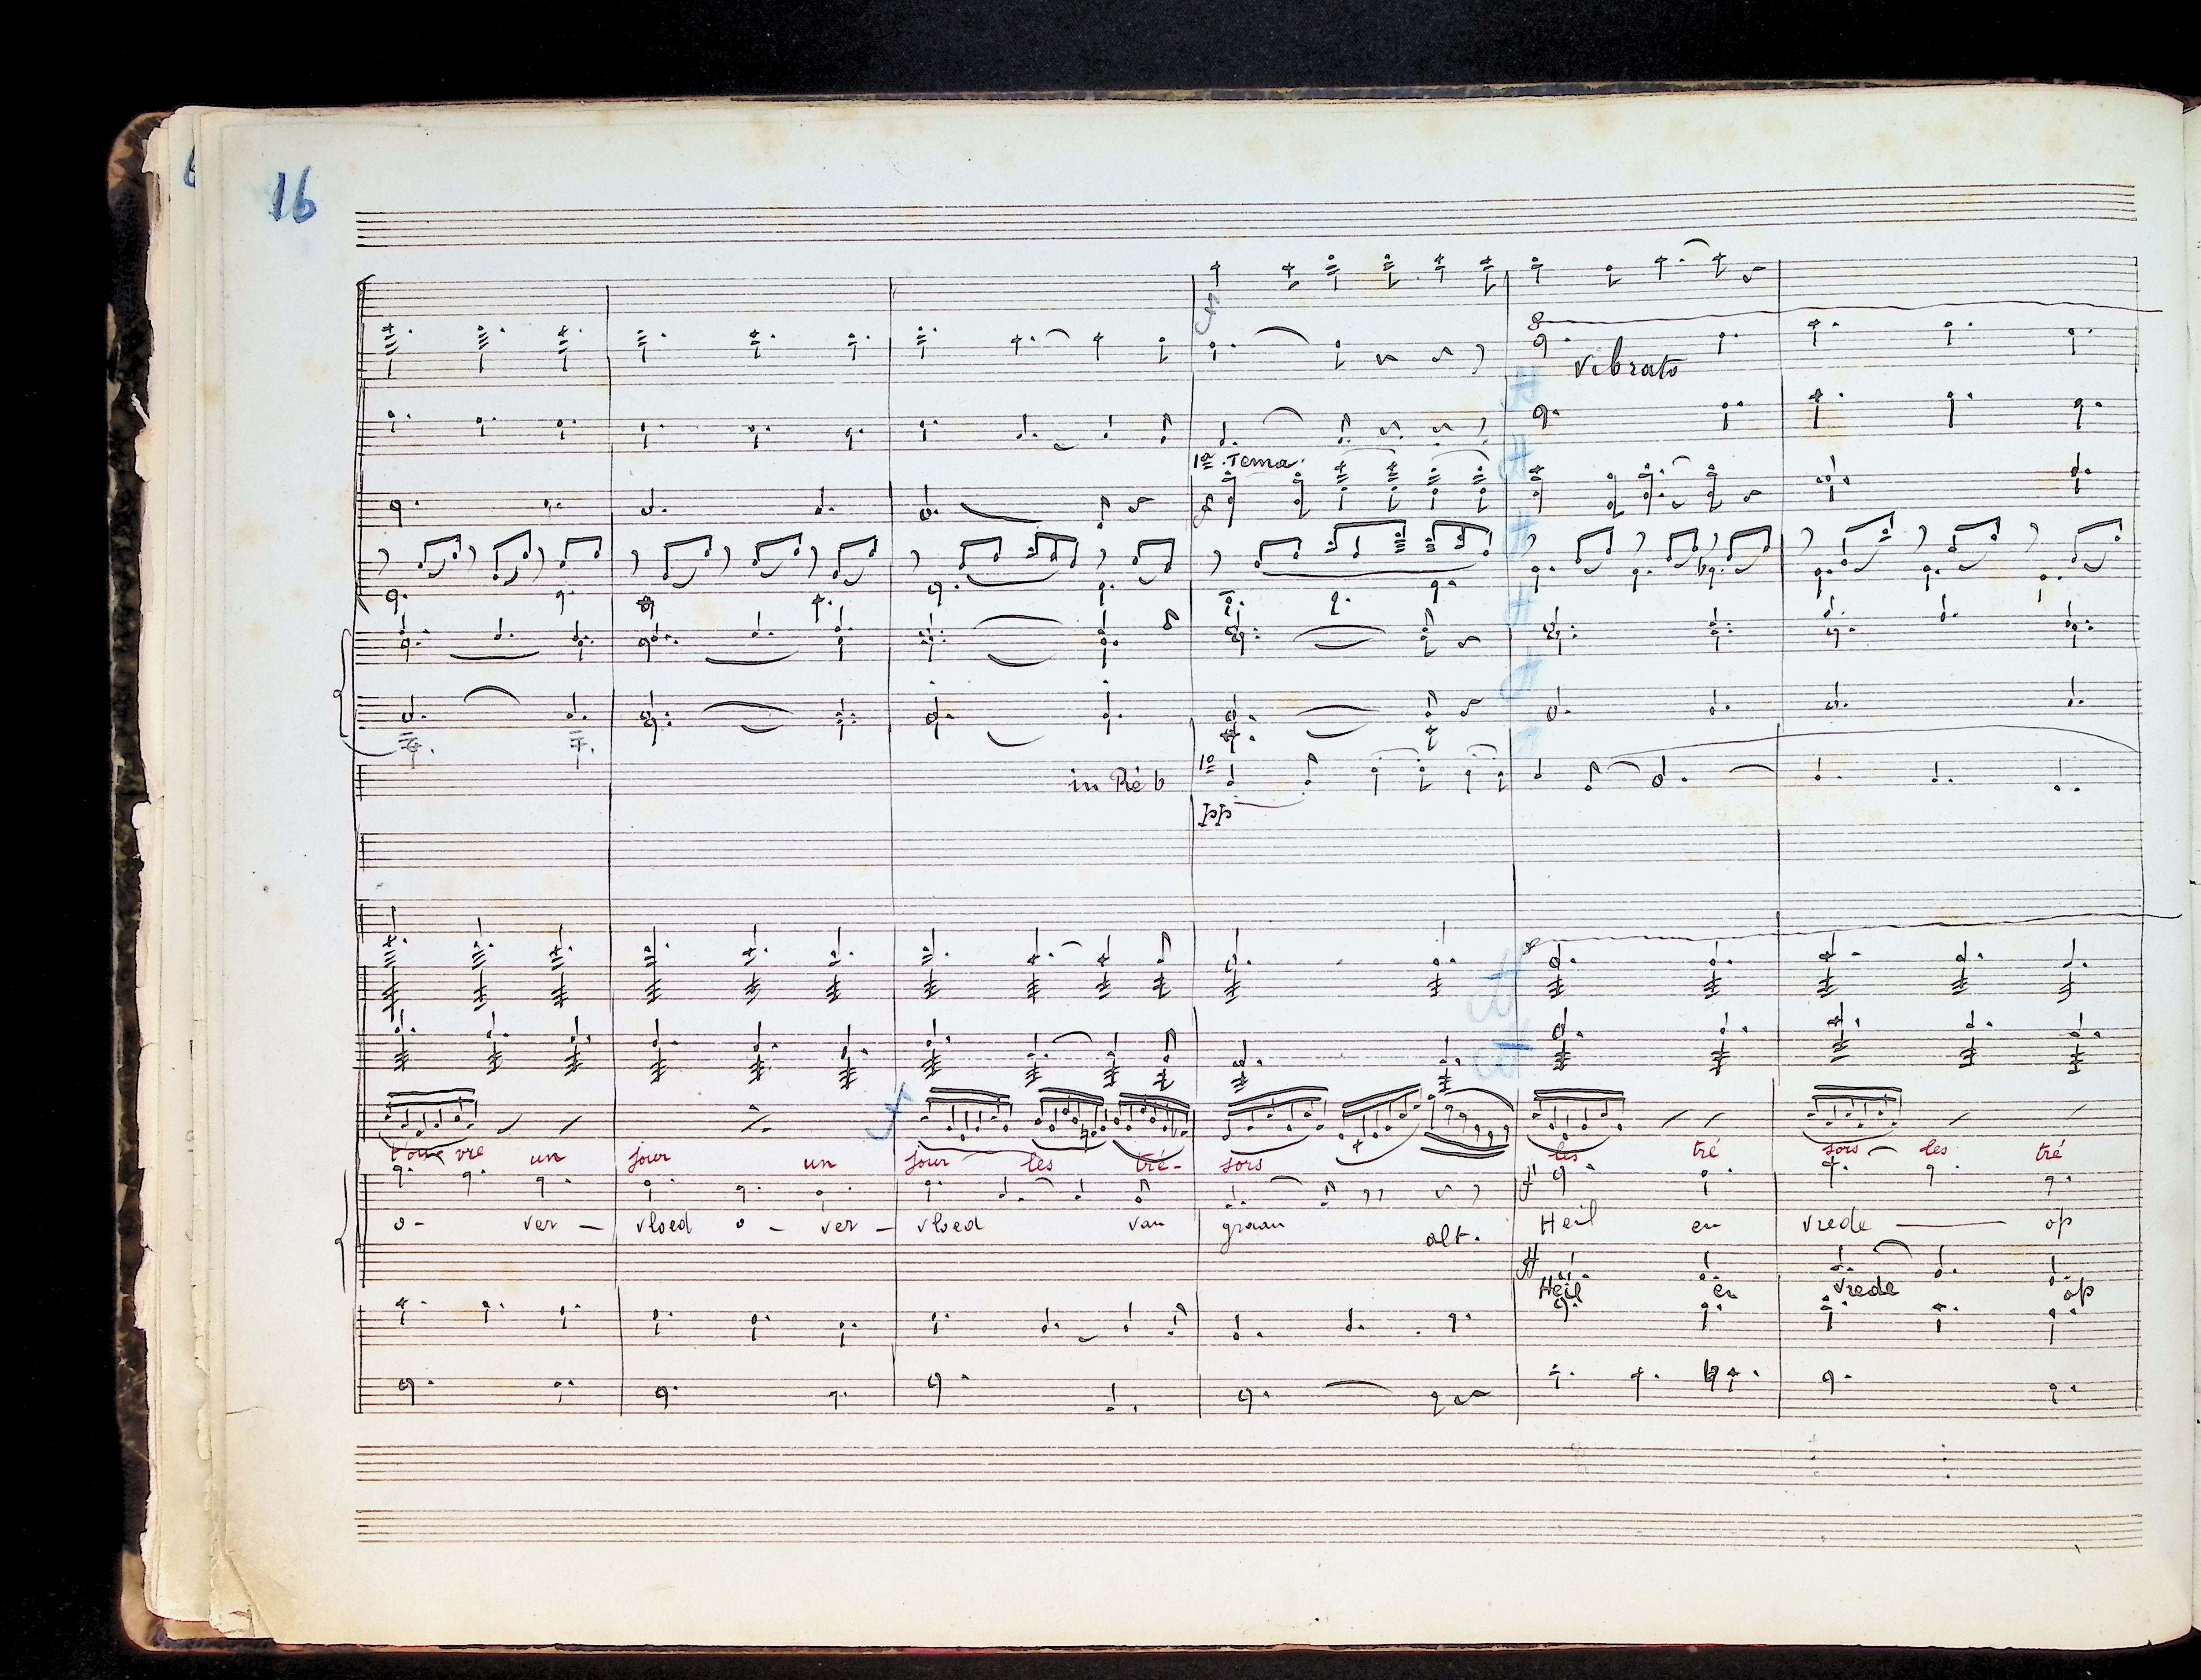 16
8
vibrato
1º Tema
in Ré b
1º
pp
8
t'ou vre un jour un jour les tré- sors les tré sors les tré
f
o- ver - vloed o - ver - vloed van graan Heil en vrede op
alt.
ff
Heil en vrede op